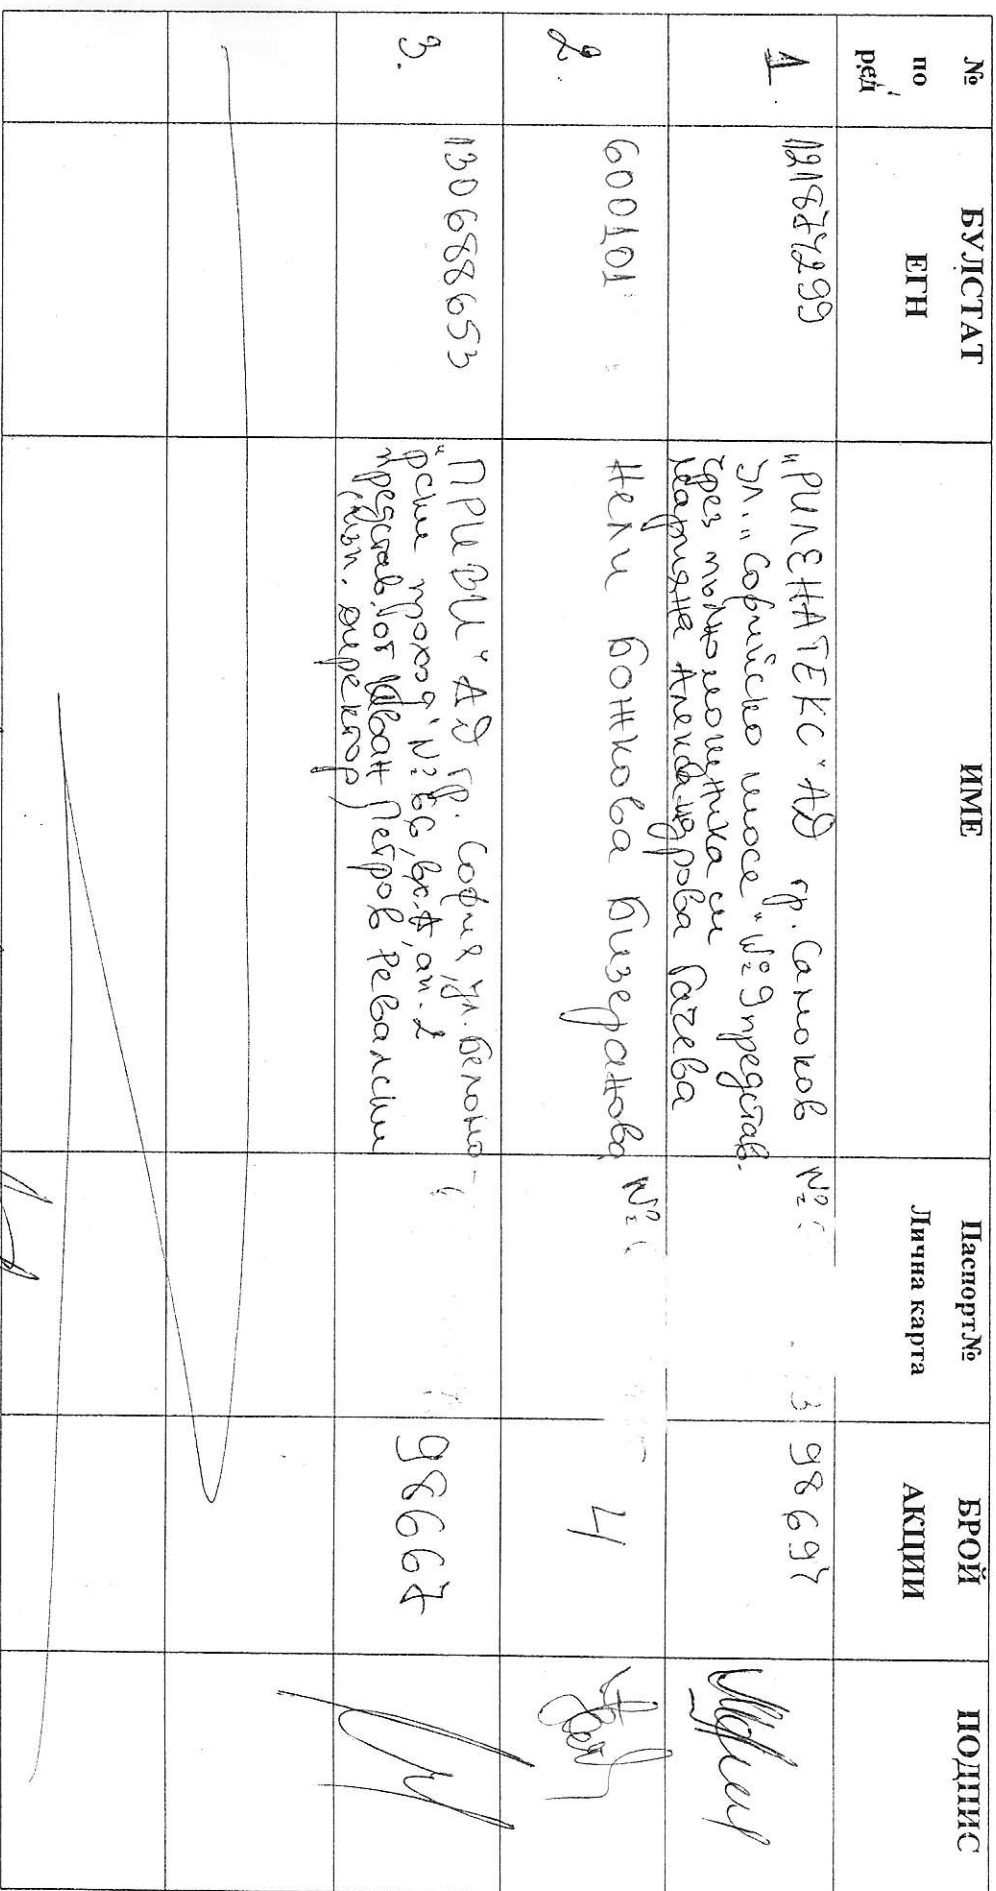 № по ред
БУЛСТАТ ЕГН
ИМЕ
Паспорт№ Лична карта
БРОЙ АКЦИИ
ПОДПИС
1.
121877299
„РИЛЕНАТЕКС“ АД гр. Самоков
ул. „Софийско шосе“ №9 представ.
чрез пълномощника си
Марияна Александрова Гачева
№
3
98697
2.
600101
Нели Божкова Бизеранова
№
4
3.
130688653
„ПРИВИ“ АД гр. София, ул. Беломо-
рски проход“ №66, вх. А, ап. 2
представ. от Иван Петров Ревалски
/изп. директор/
98667